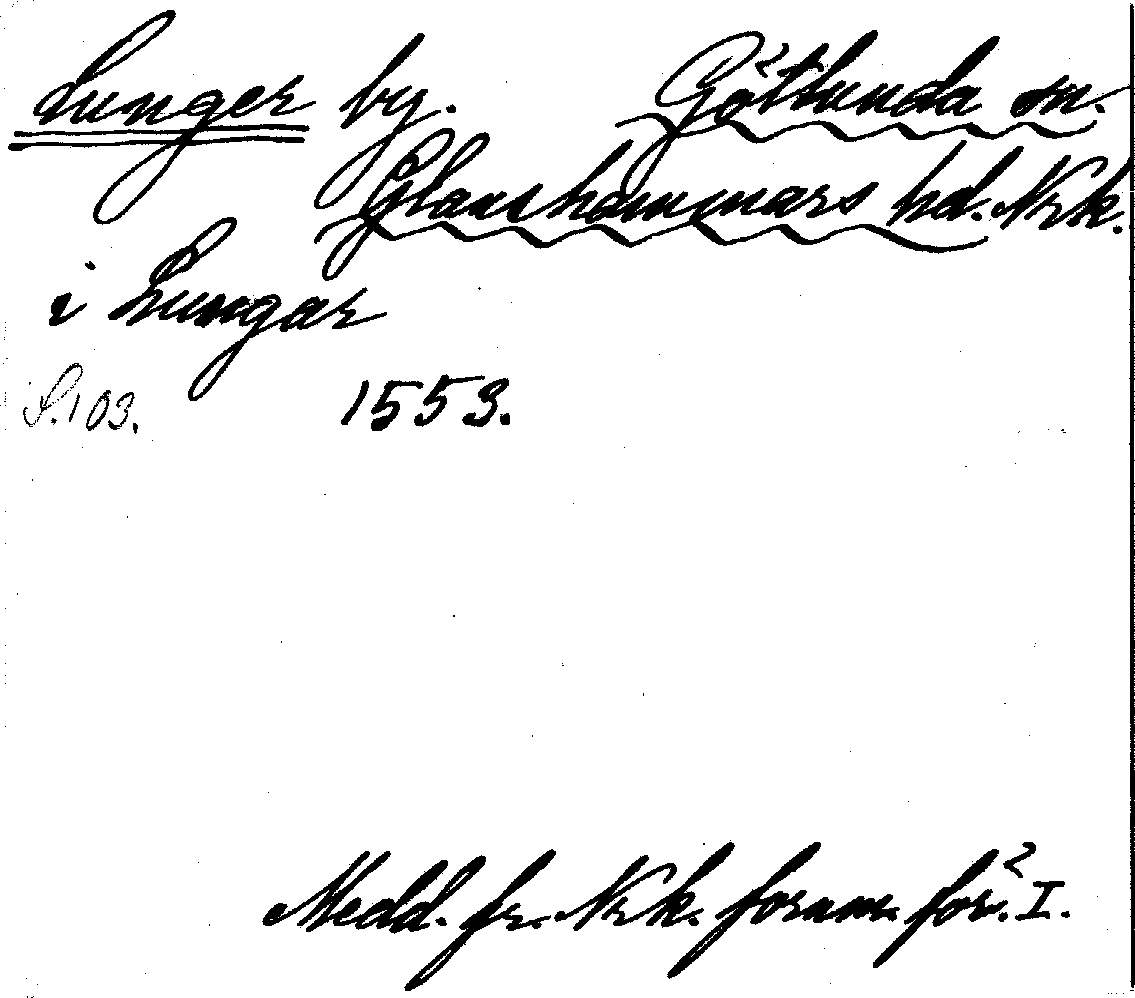 Lunger by. Götlunda sn.
Glanshammars hd. Nrk.
i Lungar
S. 103. 1553.
Medd. fr. Nrk. fornm. för. I.